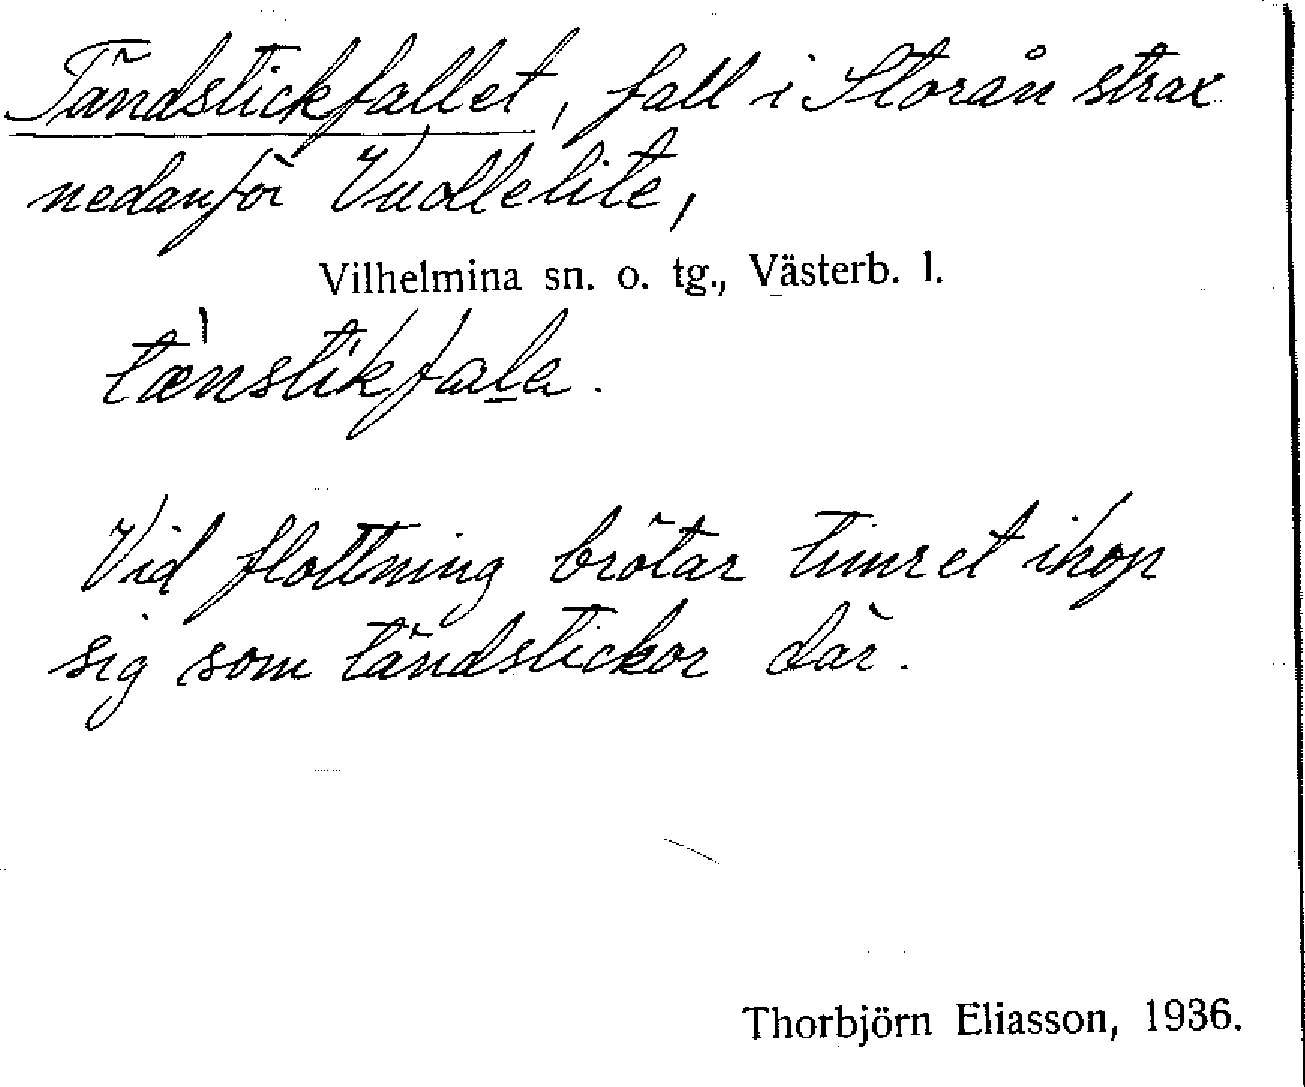 Tändstickfallet, fall i Storån strax
nedanför Vudllelite,
Vilhelmina sn. o. tg., Västerb. l.
tæ̀nstikfala.
Vid flottning brötar timret ihop
sig som tändstickor där.
Thorbjörn Eliasson, 1936.